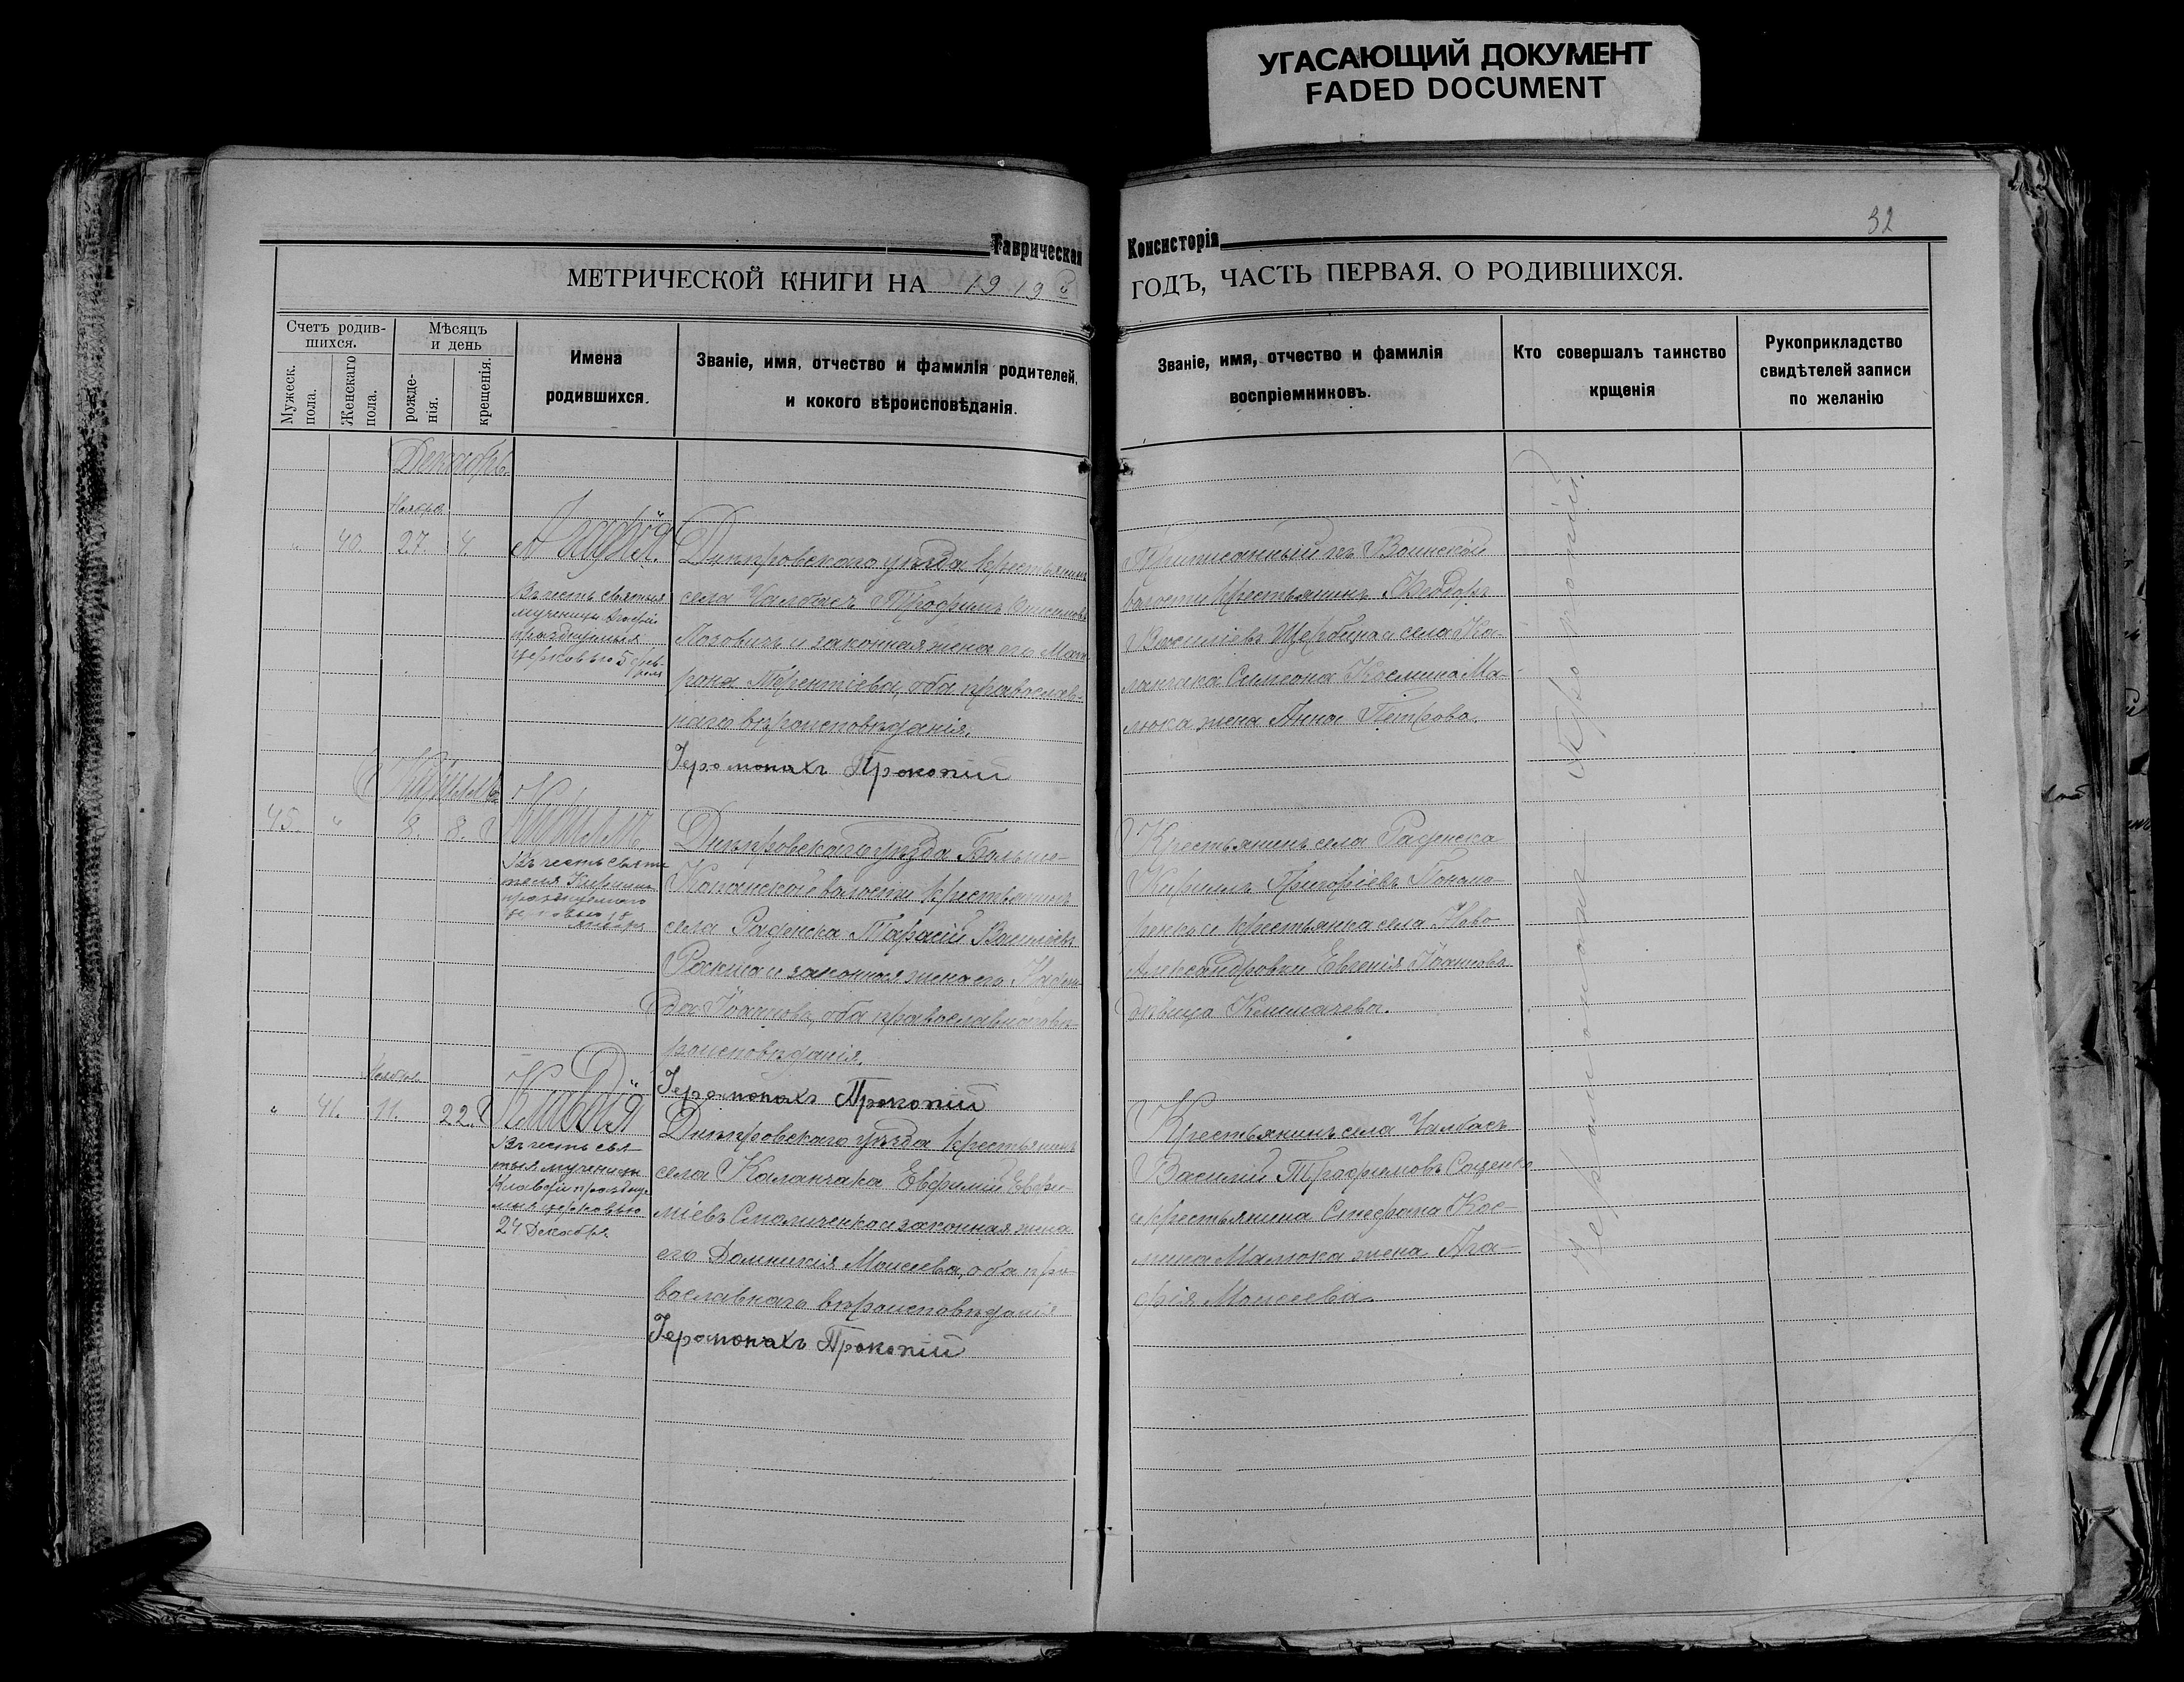 УГАСАЮЩИЙ ДОКУМЕНТ
FADED DOCUMENT
32
Таврическая Консисторія
МЕТРИЧЕСКОЙ КНИГИ НА 1919 ГОДЪ, ЧАСТЬ ПЕРВАЯ, О РОДИВШИХСЯ.
Счетъ родив-
шихся.
Мужеск.
пола.
Женскаго
пола.
Мѣсяцъ
и день
рожде-
нія.
крещенія.
Имена
родившихся.
Званіе, имя, отчество и фамилія родителей,
и кокого вѣроисповѣданія.
Званіе, имя, отчество и фамилія
воспріемниковъ.
Кто совершалъ таинство
крщенія
Рукоприкладство
свидѣтелей записи
по желанію
Декабрь.
Ноября
" 40. 27. 4.
Агафія.
Въ честь святыя
мученицы Агафіи
празднуемыя
церковью 5 февраля
Днѣпровскаго уѣзда крестьянинъ
села Чалбасъ Трофимъ
Лозовикъ и законная жена его
Терентіева, оба православ-
наго вѣроисповѣданія.
Іеромонахъ Прокопій
Приписанный къ Воинской
волости крестьянинъ Феодоръ
Василіевъ Щербина и села Ка-
ланчака Симеона Космина Ма-
люка жена Анна Петрова.
45. " 8. 8.
Кириллъ
Въ честь святи
теля Кирилла
празднуемаго
церковью 18
Днѣпровскаго уѣзда Больше-
Копанской волости крестьянинъ
села Раденска Тарасій Василіевъ
и законная жена его Надеж-
да Іоаннова, оба православнаго вѣ-
роисповѣданія.
Іеромонахъ Прокопій
Крестьянинъ села Раденска
Кириллъ Григоріевъ Понома-
ренко и крестьянка села Ново-
Александровки Евгенія Іоаннова
дѣвица
Ноября
" 41. 11. 22.
Клавдія
Въ честь свя
тыя мученицы
Клавдіи праздну
мыя церковью
24 Декабря
Днѣпровскаго уѣзда крестьянинъ
села Каланчака Евфимій Евфи-
міевъ и законная жена
его Домникія Моисеева, оба пра-
вославнаго вѣроисповѣданія
Іеромонахъ Прокопій
Крестьянинъ села Чалбасъ
Василій Трофимовъ Саценко
и крестьянина Стефана Кос-
мина Малюка жена Ага-
фія Моисеева.
Іеромонахъ Прокопій.